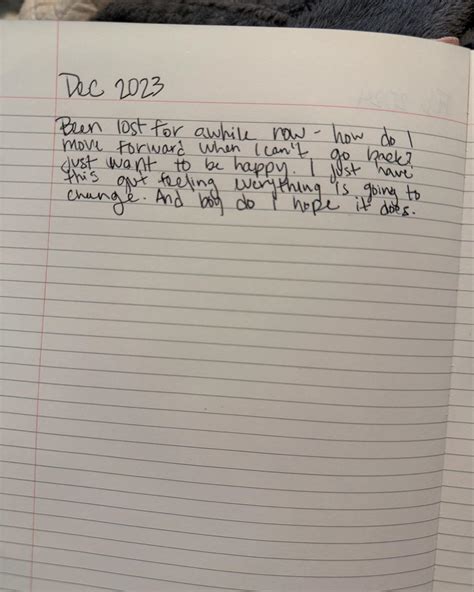 Dec 2023
Been lost for awhile now - how do I
move forward when I can't go back?
Just want to be happy. I just have
this gut feeling everything is going to
change. And boy do I hope it does.